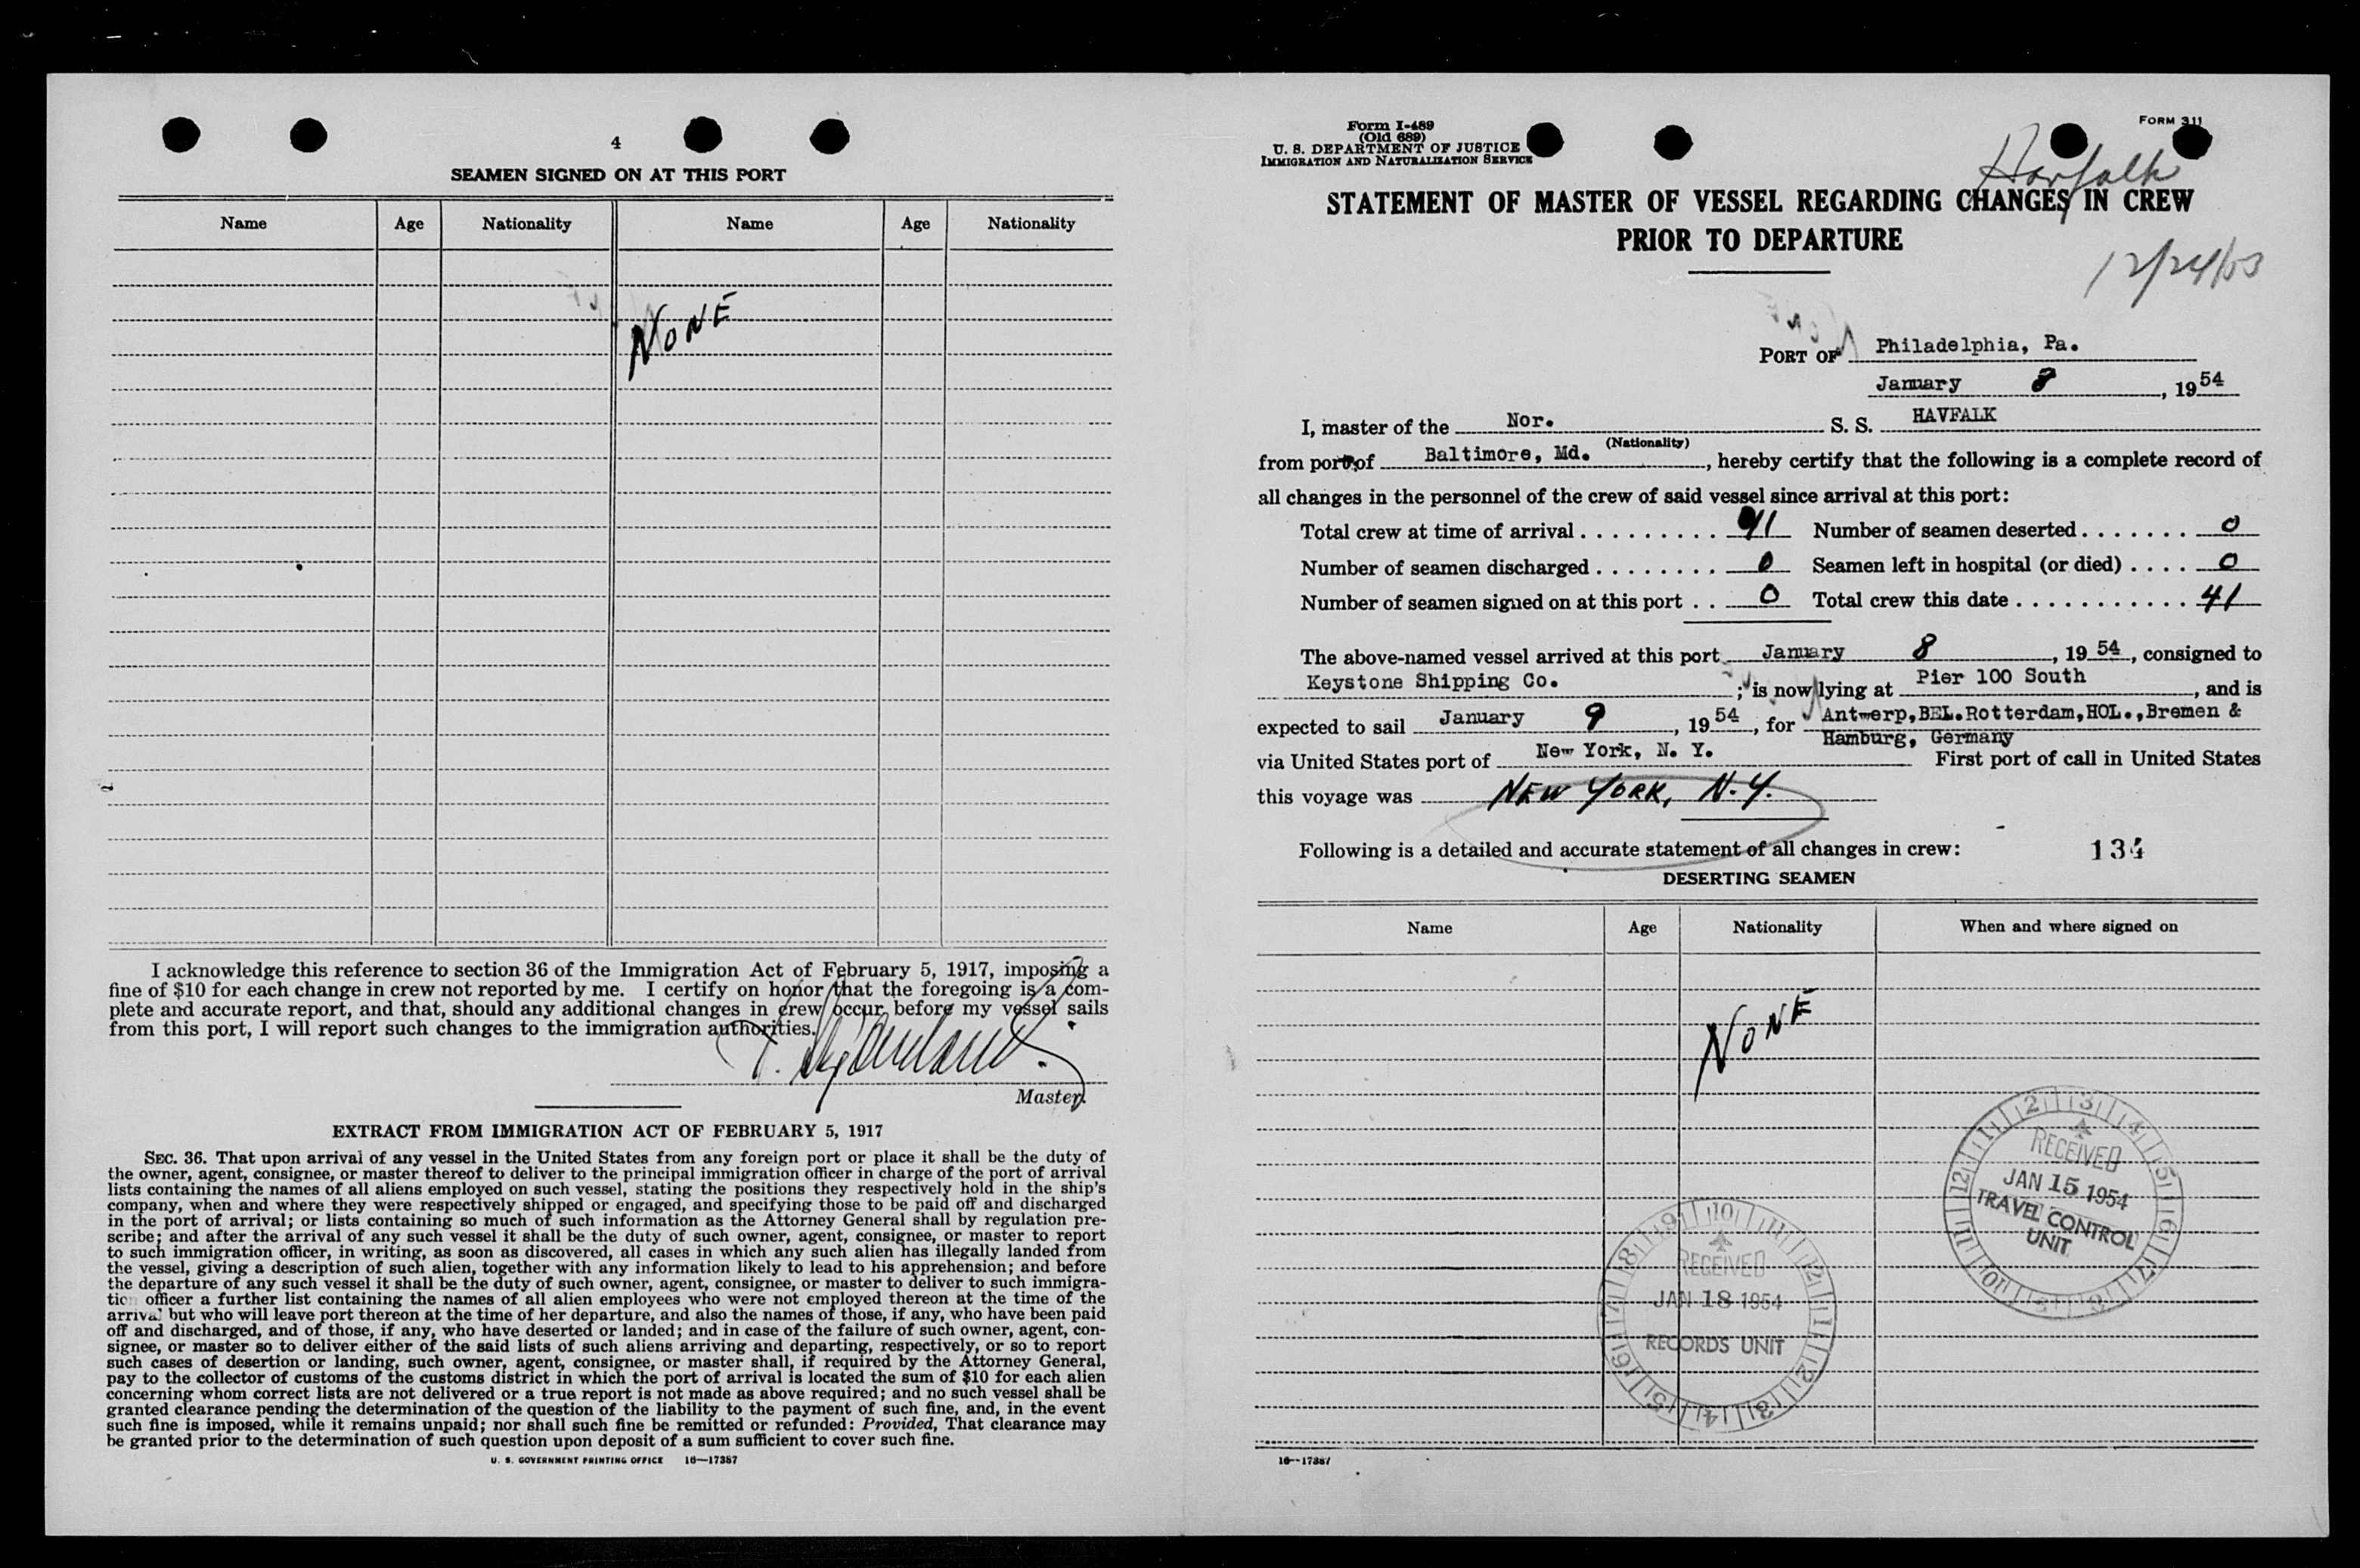 4
SEAMEN SIGNED ON AT THIS PORT
Name Age Nationality Name Age Nationality
NONE
I acknowledge this reference to section 36 of the Immigration Act of February 5, 1917, imposing a
fine of $10 for each change in crew not reported by me. I certify on honor that the foregoing is a com-
plete and accurate report, and that, should any additional changes in crew occur before my vessel sails
from this port, I will report such changes to the immigration authorities.
Master.
EXTRACT FROM IMMIGRATION ACT OF FEBRUARY 5, 1917
SEC. 36. That upon arrival of any vessel in the United States from any foreign port or place it shall be the duty of
the owner, agent, consignee, or master thereof to deliver to the principal immigration officer in charge of the port of arrival
lists containing the names of all aliens employed on such vessel, stating the positions they respectively hold in the ship's
company, when and where they were respectively shipped or engaged, and specifying those to be paid off and discharged
in the port of arrival; or lists containing so much of such information as the Attorney General shall by regulation pre-
scribe; and after the arrival of any such vessel it shall be the duty of such owner, agent, consignee, or master to report
to such immigration officer, in writing, as soon as discovered, all cases in which any such alien has illegally landed from
the vessel, giving a description of such alien, together with any information likely to lead to his apprehension; and before
the departure of any such vessel it shall be the duty of such owner, agent, consignee, or master to deliver to such immigra-
tion officer a further list containing the names of all alien employees who were not employed thereon at the time of the
arrival but who will leave port thereon at the time of her departure, and also the names of those, if any, who have been paid
off and discharged, and of those, if any, who have deserted or landed; and in case of the failure of such owner, agent, con-
signee, or master so to deliver either of the said lists of such aliens arriving and departing, respectively, or so to report
such cases of desertion or landing, such owner, agent, consignee, or master shall, if required by the Attorney General,
pay to the collector of customs of the customs district in which the port of arrival is located the sum of $10 for each alien
concerning whom correct lists are not delivered or a true report is not made as above required; and no such vessel shall be
granted clearance pending the determination of the question of the liability to the payment of such fine, and, in the event
such fine is imposed, while it remains unpaid; nor shall such fine be remitted or refunded: Provided, That clearance may
be granted prior to the determination of such question upon deposit of a sum sufficient to cover such fine.
U. S. GOVERNMENT PRINTING OFFICE 16—17387
Form I-489
(Old 689)
U. S. DEPARTMENT OF JUSTICE
IMMIGRATION AND NATURALIZATION SERVICE
FORM 311
Havfalk
STATEMENT OF MASTER OF VESSEL REGARDING CHANGES IN CREW
PRIOR TO DEPARTURE
12/24/53
PORT OF Philadelphia, Pa.
January 8, 1954
I, master of the Nor. S. S. HAVFALK
(Nationality)
from port of Baltimore, Md., hereby certify that the following is a complete record of
all changes in the personnel of the crew of said vessel since arrival at this port:
Total crew at time of arrival . . . . . . . . . 41 Number of seamen deserted . . . . . . . 0
Number of seamen discharged . . . . . . . . 0 Seamen left in hospital (or died) . . . . 0
Number of seamen signed on at this port . . 0 Total crew this date . . . . . . . . . . . 41
The above-named vessel arrived at this port January 8, 1954, consigned to
Keystone Shipping Co. ; is now lying at Pier 100 South, and is
expected to sail January 9, 1954, for Antwerp,BEL.Rotterdam,HOL.,Bremen &
Hamburg, Germany
via United States port of New York, N. Y. First port of call in United States
this voyage was NEW YORK, N.Y.
Following is a detailed and accurate statement of all changes in crew: 134
DESERTING SEAMEN
Name Age Nationality When and where signed on
NONE
RECEIVED
JAN 15 1954
TRAVEL CONTROL
UNIT
RECEIVED
JAN 18 1954
RECORDS UNIT
16—17387